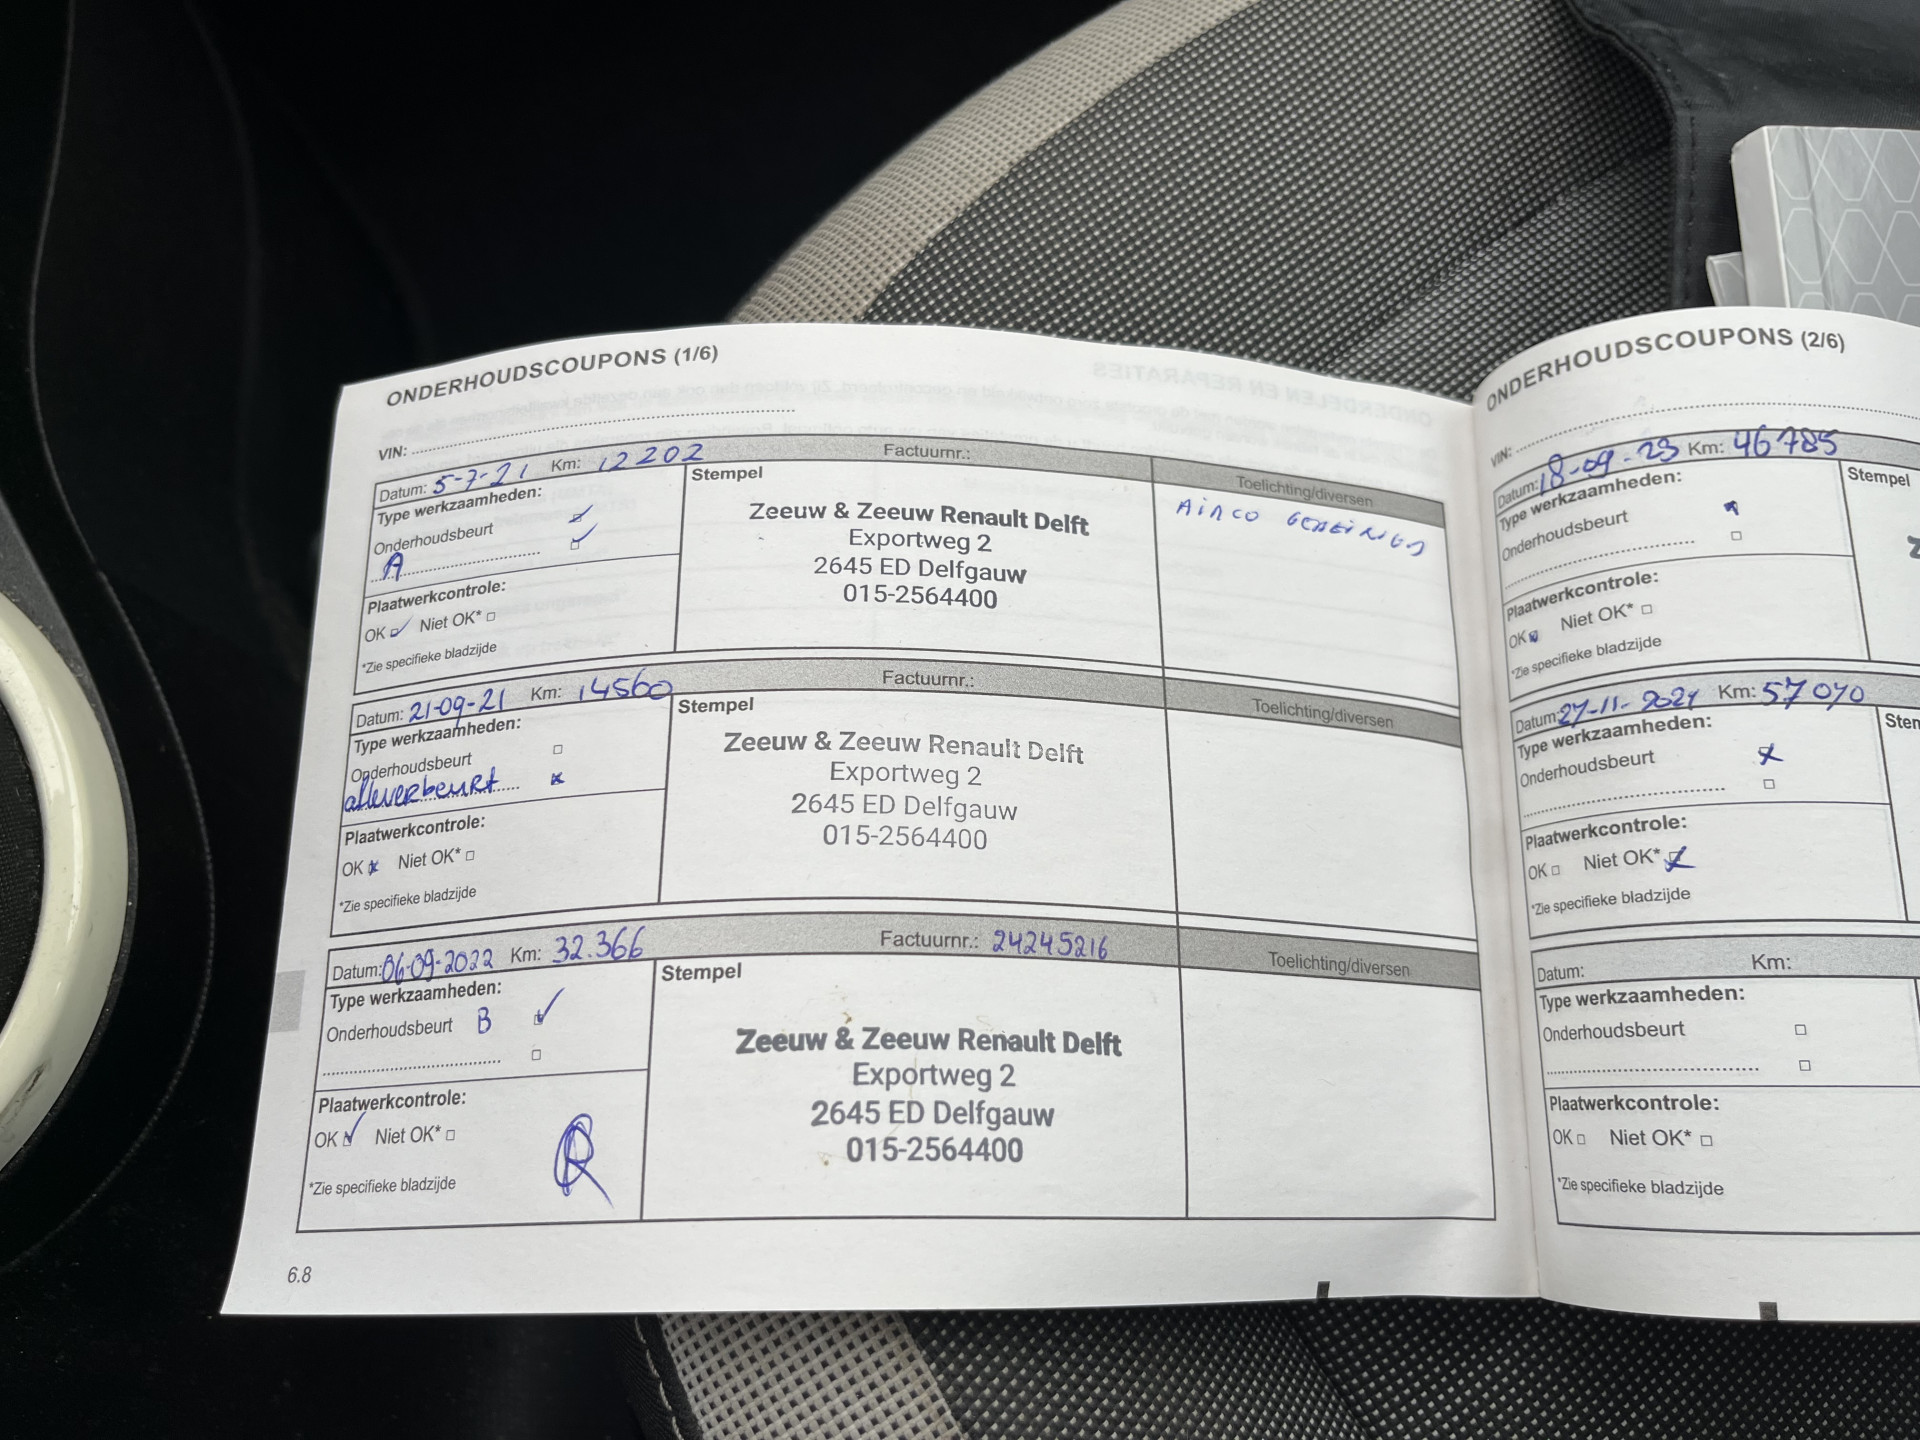 ONDERHOUDSCOUPONS (1/6)
VIN:
Datum: 5-7-21 Km: 12202 Factuurnr.:
Type werkzaamheden:
Onderhoudsbeurt
A
Plaatwerkcontrole:
OK Niet OK*
*Zie specifieke bladzijde
Stempel
Zeeuw & Zeeuw Renault Delft
Exportweg 2
2645 ED Delfgauw
015-2564400
Toelichting/diversen
AIRCO GEREINIGD
Datum: 21-09-21 Km: 14560 Factuurnr.:
Type werkzaamheden:
Onderhoudsbeurt
afleverbeurt
Plaatwerkcontrole:
OK Niet OK*
*Zie specifieke bladzijde
Stempel
Zeeuw & Zeeuw Renault Delft
Exportweg 2
2645 ED Delfgauw
015-2564400
Toelichting/diversen
Datum: 06-09-2022 Km: 32.366 Factuurnr.: 24245216
Type werkzaamheden:
Onderhoudsbeurt B
Plaatwerkcontrole:
OK Niet OK*
*Zie specifieke bladzijde
Stempel
Zeeuw & Zeeuw Renault Delft
Exportweg 2
2645 ED Delfgauw
015-2564400
Toelichting/diversen
6.8
ONDERHOUDSCOUPONS (2/6)
VIN:
Datum: 18-09-23 Km: 46785
Type werkzaamheden:
Onderhoudsbeurt
Plaatwerkcontrole:
OK Niet OK*
*Zie specifieke bladzijde
Stempel
Datum: 27-11-2024 Km: 57070
Type werkzaamheden:
Onderhoudsbeurt
Plaatwerkcontrole:
OK Niet OK*
*Zie specifieke bladzijde
Datum: Km:
Type werkzaamheden:
Onderhoudsbeurt
Plaatwerkcontrole:
OK Niet OK*
*Zie specifieke bladzijde